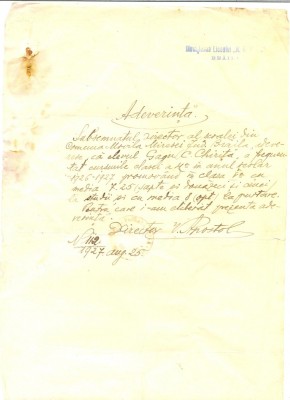 Adeverință
Subsemnatul, director al școalei din
Comuna Movila Miresei jud. Brăila, adeve-
resc, că elevul Gagu C. Chirița, a frequen-
tat cursurile clasei a V-a în anul școlar
1926-1927 promovând în clasa
media 7.25, șapte și douăzeci și cinci,
la studii și cu media 8, opt la purtare.
Pentru care i-am eliberat prezenta ade-
verință.
Director V. Apostol
No 112
1927 aug 25.